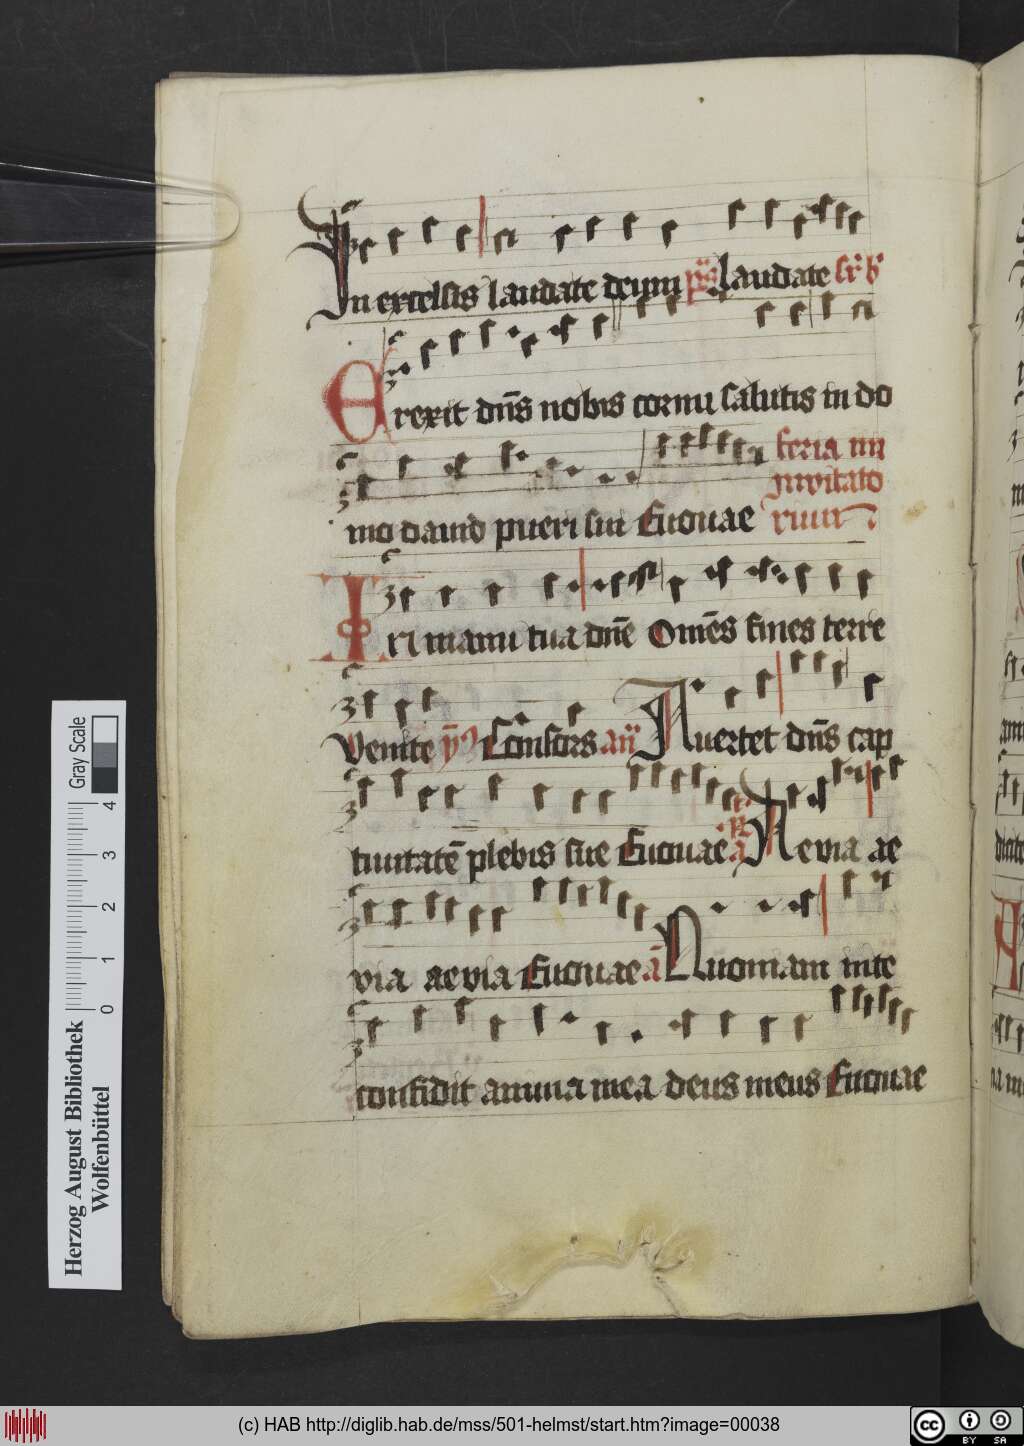 In excelsis laudate deum p̄s laudate
Erexit dn̄s nobis cornu salutis in do
mo dauid pueri sui Euouae feria iiii
jnuitato
rium
In manu tua dn̄e Om̄es fines terre
Venite ym̄ Consors an̄ Auertet dn̄s cap
tiuitatē plebis sue Euouae a Aeuia ae
uia aeuia Euouae ā Quoniam in te
confidit anima mea deus meus Euouae
Gray Scale
4
3
2
1
0
Herzog August Bibliothek
Wolfenbüttel
(c) HAB http://diglib.hab.de/mss/501-helmst/start.htm?image=00038
cc BY SA